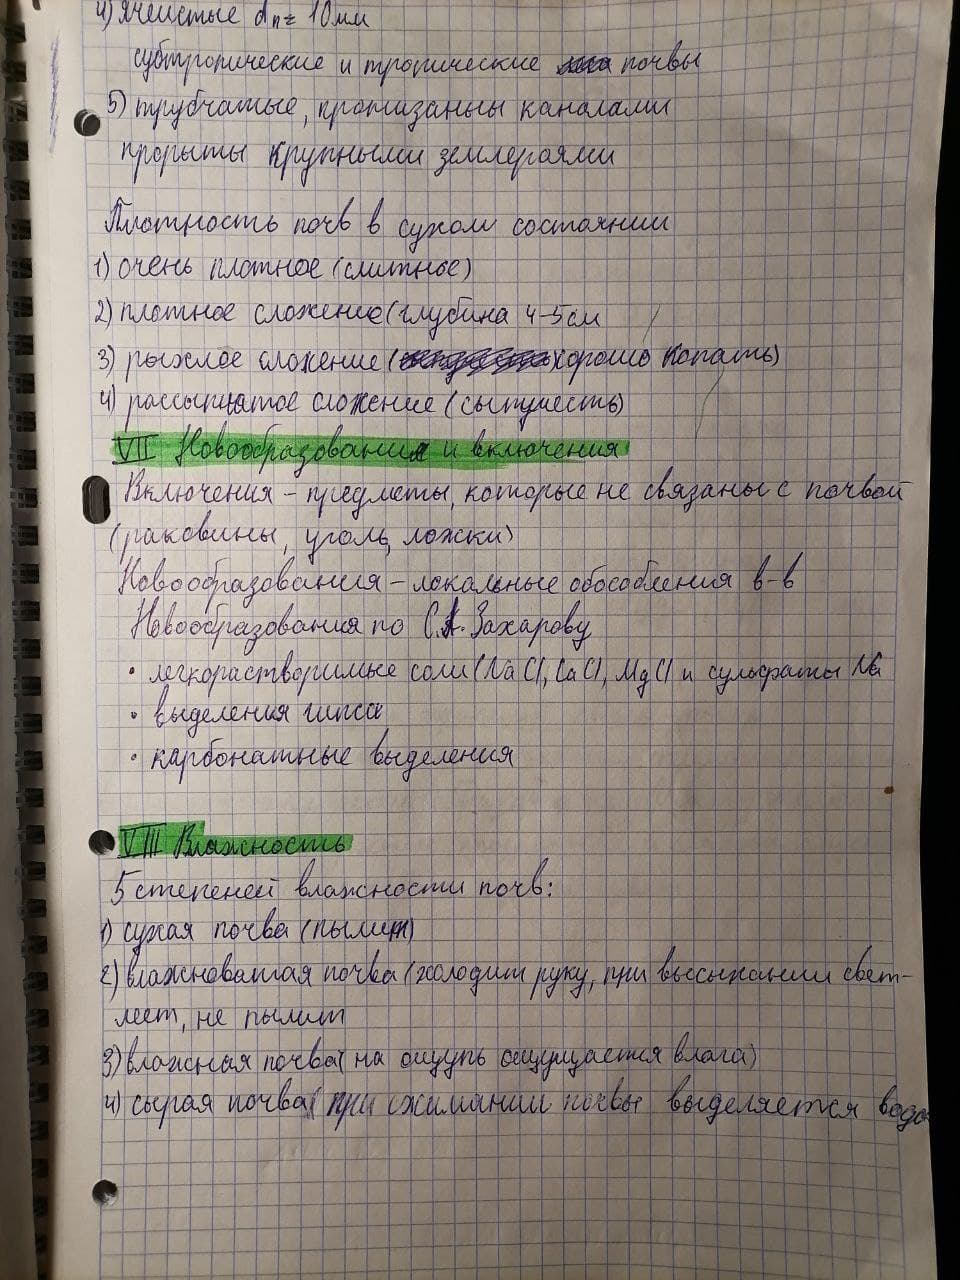 4) ячеистые dп = 10мм
субтропические и тропические почвы
5) трубчатые, пронизаны каналами
прорыты крупными землероями
Плотность почв в сухом состоянии
1) очень плотное (слитное)
2) плотное сложение (глубина 4-5см
3) рыхлое сложение (хорошо копать)
4) рассыпчатое сложение (сыпучесть)
VII Новообразования и включения
Включения – предметы, которые не связаны с почвой
(раковины, уголь, ложки)
Новообразования – локальные обособления в-в
Новообразования по С.А. Захарову
• легкорастворимые соли (NaCl, CaCl, MgCl и сульфаты Na
• выделения гипса
• карбонатные выделения
VIII Влажность
5 степеней влажности почв:
1) сухая почва (пылит)
2) влажноватая почва (холодит руку, при высыхании свет-
леет, не пылит
3) влажная почва (на ощупь ощущается влага)
4) сырая почва (при сжимании почвы выделяется вода